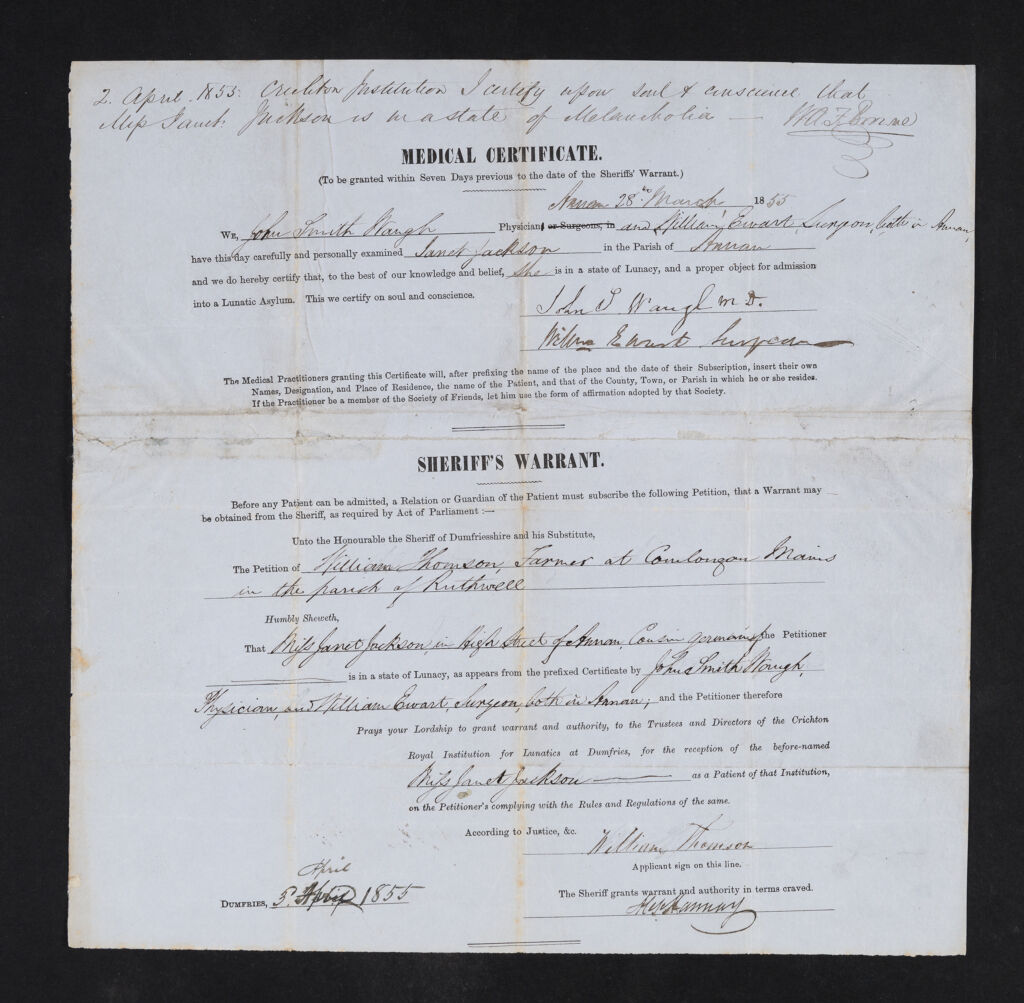 2. April. 1855. Crichton Institution I certify upon soul & conscience that
Miss Janet Jackson is in a state of Melancholia —
MEDICAL CERTIFICATE.
(To be granted within Seven Days previous to the date of the Sheriffs' Warrant.)
Annan 28th March 1855
We, John Smith Waugh Physician or Surgeons, in and William Ewart Surgeon, both in Annan,
have this day carefully and personally examined Janet Jackson in the Parish of Annan
and we do hereby certify that, to the best of our knowledge and belief, She is in a state of Lunacy, and a proper object for admission
into a Lunatic Asylum. This we certify on soul and conscience.
John S Waugh M D.
Willm Ewart Surgeon
The Medical Practitioners granting this Certificate will, after prefixing the name of the place and the date of their Subscription, insert their own
Names, Designation, and Place of Residence, the name of the Patient, and that of the County, Town, or Parish in which he or she resides.
If the Practitioner be a member of the Society of Friends, let him use the form of affirmation adopted by that Society.
SHERIFF'S WARRANT.
Before any Patient can be admitted, a Relation or Guardian of the Patient must subscribe the following Petition, that a Warrant may
be obtained from the Sheriff, as required by Act of Parliament :—
Unto the Honourable the Sheriff of Dumfriesshire and his Substitute,
The Petition of William Thomson, Farmer at Comlongon Mains
in the parish of Ruthwell
Humbly Sheweth,
That Miss Janet Jackson, in High Street of Annan, Cousin german of the Petitioner
is in a state of Lunacy, as appears from the prefixed Certificate by John Smith Waugh,
Physician, and William Ewart, Surgeon, both in Annan; and the Petitioner therefore
Prays your Lordship to grant warrant and authority, to the Trustees and Directors of the Crichton
Royal Institution for Lunatics at Dumfries, for the reception of the before-named
Miss Janet Jackson — as a Patient of that Institution,
on the Petitioner's complying with the Rules and Regulations of the same.
According to Justice, &c.
William Thomson
Applicant sign on this line.
April
Dumfries, 5. April 1855
The Sheriff grants warrant and authority in terms craved.
Hannay